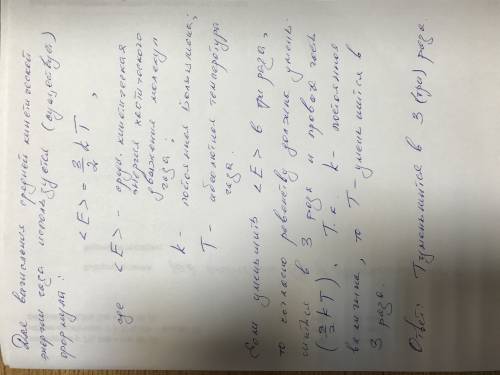 Для вычисления средней кинетической
энергии газа используется (существует)
формула:
<E> = 3/2 kT,
где <E> - средн. кинетическая
энергия хаотического
движения молекул
газа;
k - постоянная Больцмана;
T - абсолютная температура
газа.
Если уменьшить <E> в три раза,
то согласно равенству должна умень-
шиться в 3 раза и правая часть
(3/2 kT). Т.к. k - постоянная
величина, то T - уменьшится в
3 раза.
Ответ: T уменьшится в 3 (три) раза